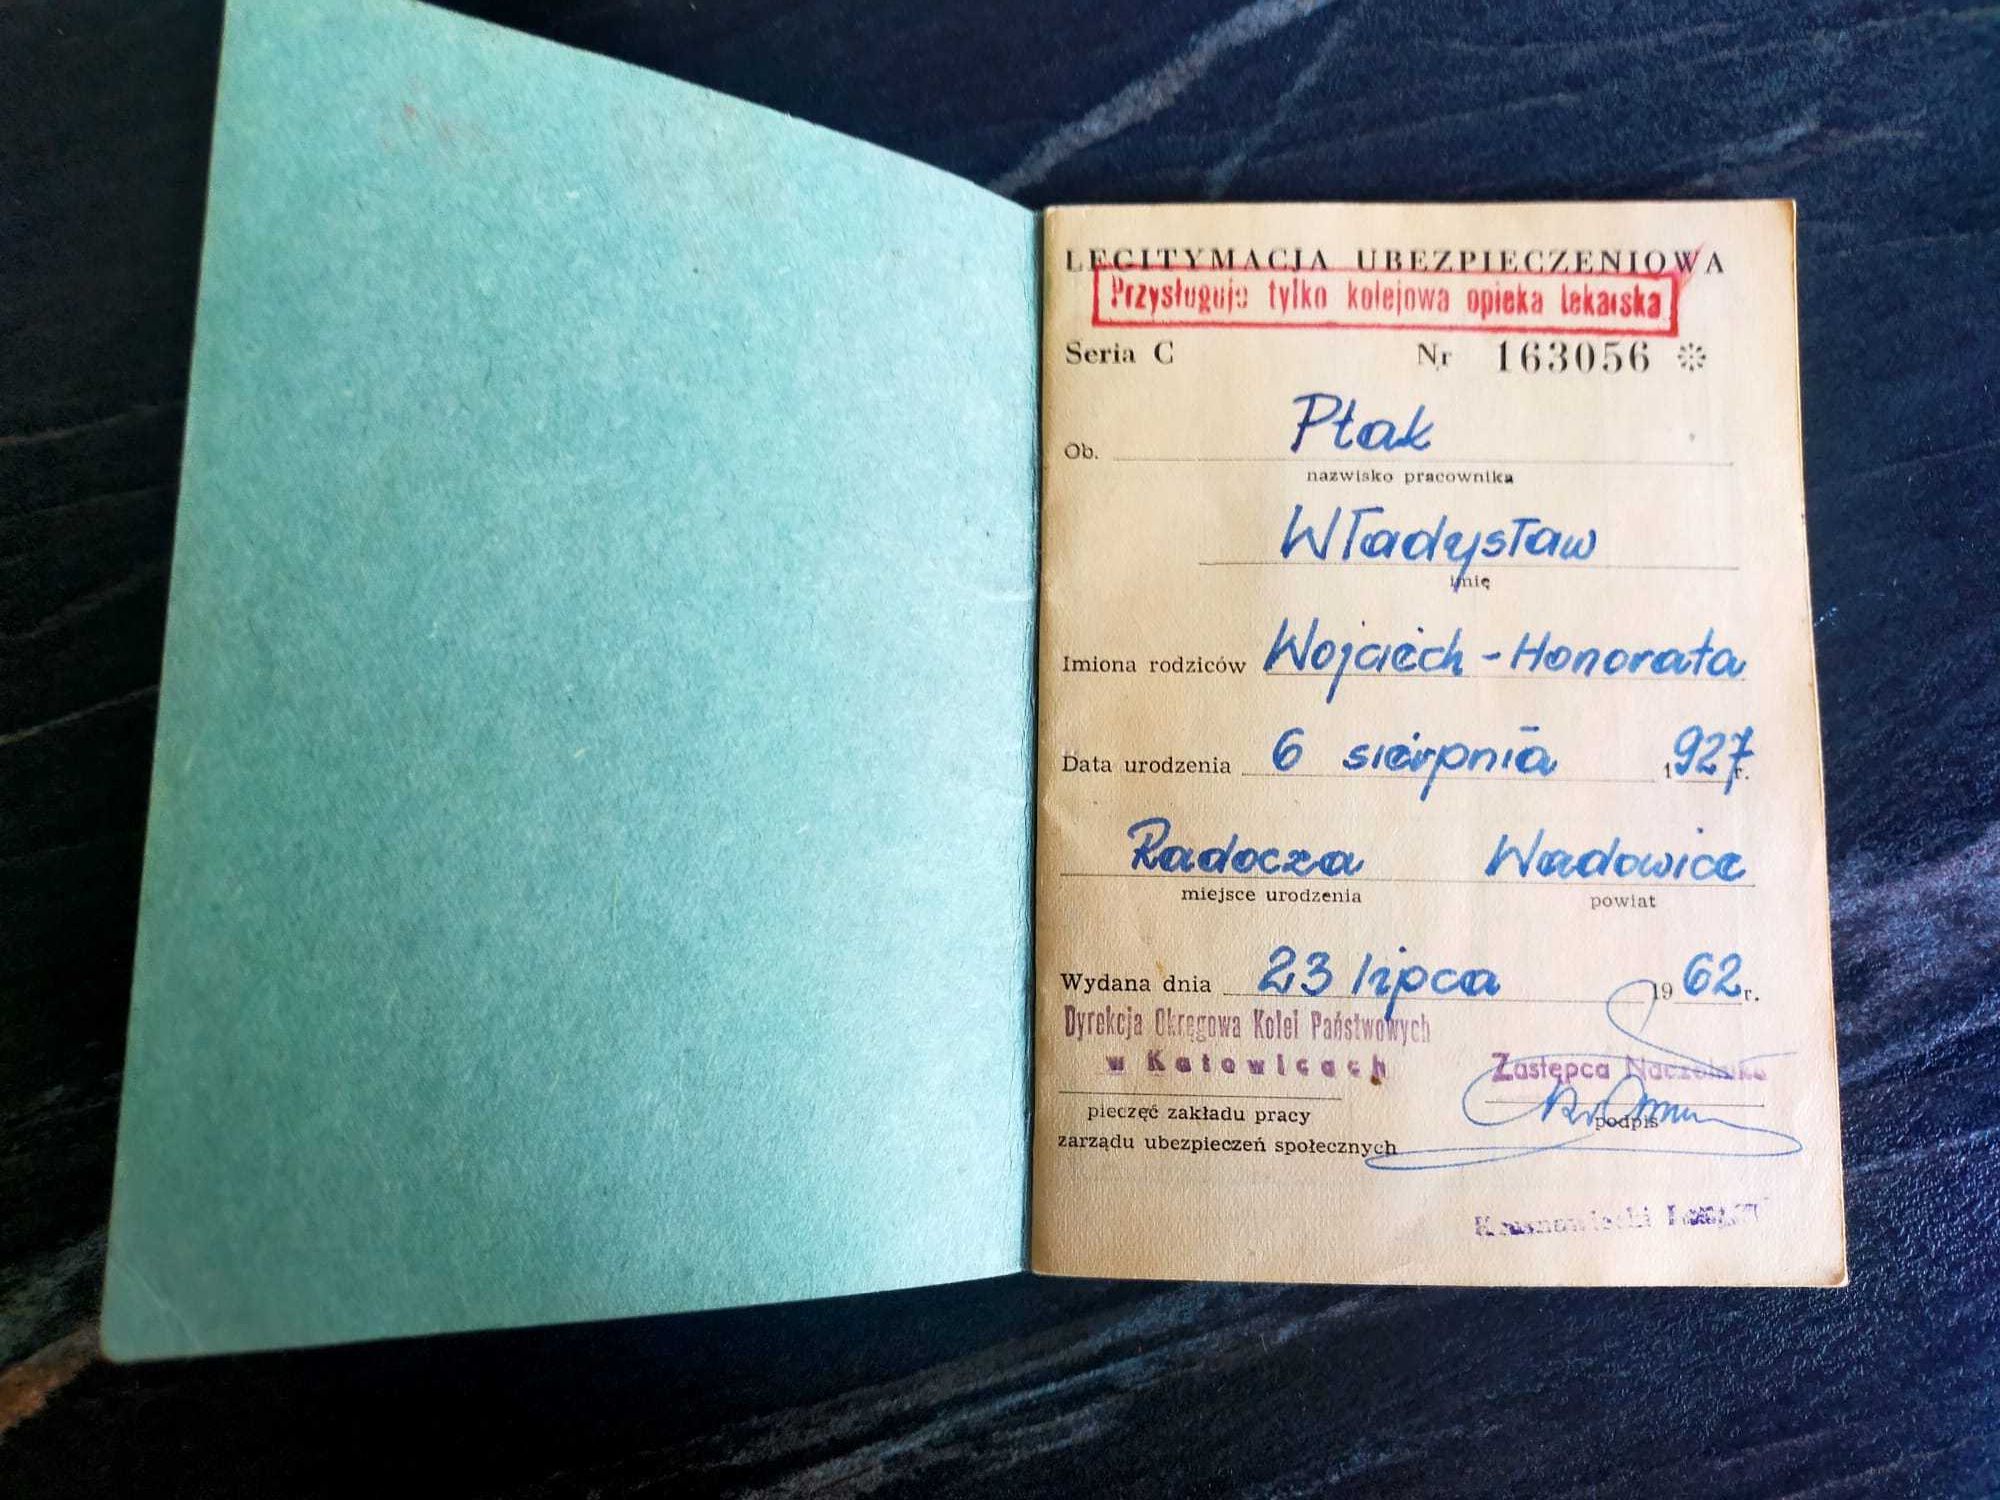 LEGITYMACJA UBEZPIECZENIOWA
Przysługuje tylko kolejowa opieka lekarska
Seria C Nr 163056
Ob. Ptak
nazwisko pracownika
Władysław
imię
Imiona rodziców Wojciech - Honorata
Data urodzenia 6 sierpnia 1927 r.
Radocza Wadowice
miejsce urodzenia powiat
Wydana dnia 23 lipca 1962 r.
Dyrekcja Okręgowa Kolei Państwowych
w Katowicach
Zastępca Naczelnika
pieczęć zakładu pracy podpis
zarządu ubezpieczeń społecznych